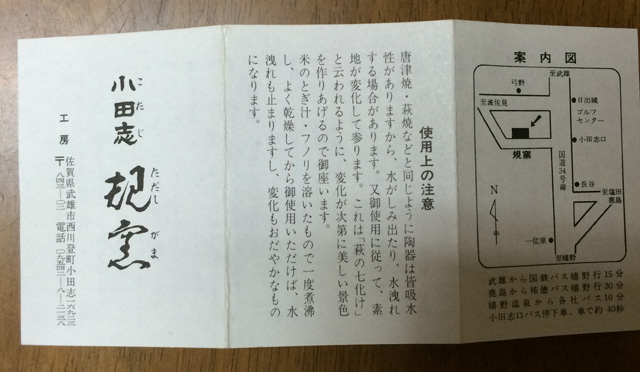 案内図
至武雄
弓野
至波佐見
日出城
ゴルフ
センター
小田志口
規窯
国道34号線
長谷
至塩田
鹿島
N
一位原
至嬉野
武雄から国鉄バス嬉野行15分
鹿島から祐徳バス嬉野行30分
嬉野温泉から各社バス10分
小田志口バス停下車、車で約40秒
使用上の注意
唐津焼・萩焼などと同じように陶器は皆吸水
性がありますから、水がしみ出たり、水洩れ
する場合があります。又御使用に従って、素
地が変化して参ります。これは「萩の七化け」
と云われるように、変化が次第に美しい景色
を作りあげるので御座います。
米のとぎ汁・フノリを溶いたもので一度煮沸
し、よく乾燥してから御使用いただけば、水
洩れも止まりますし、変化もおだやかなもの
になります。
こたじ
小田志
ただしがま
規窯
工房
佐賀県武雄市西川登町小田志
〒八四三―〇二
電話